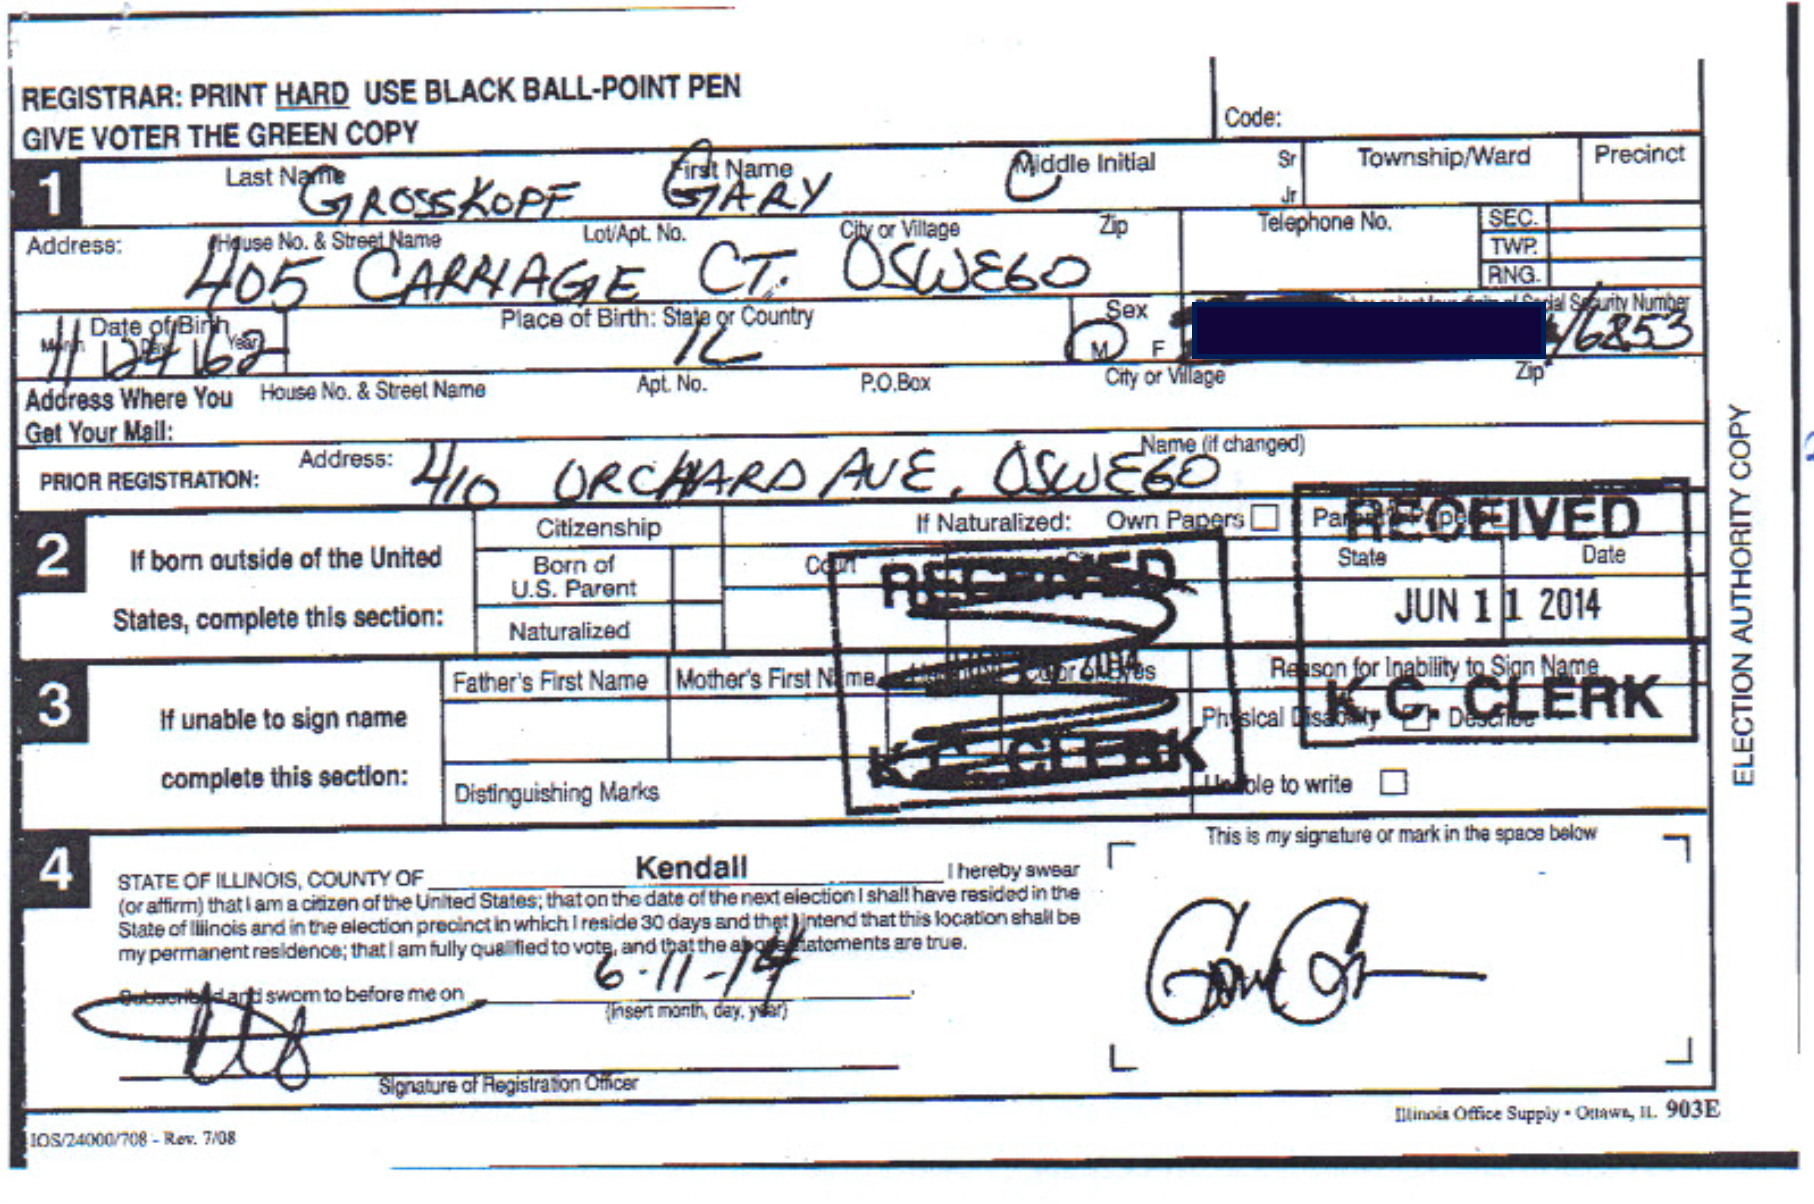 REGISTRAR: PRINT HARD USE BLACK BALL-POINT PEN
Code:
GIVE VOTER THE GREEN COPY
1 Last Name First Name Middle Initial Sr Jr Township/Ward Precinct
GROSSKOPF GARY C
Address: House No. & Street Name Lot/Apt. No. City or Village Zip Telephone No. SEC.
TWP.
RNG.
405 CARRIAGE CT. OSWEGO
Date of Birth Place of Birth: State or Country Sex Social Security Number
Month Day Year
11 24 62 IL M F 6853
Address Where You House No. & Street Name Apt. No. P.O.Box City or Village Zip
Get Your Mail:
PRIOR REGISTRATION: Address: Name (if changed)
410 ORCHARD AVE. OSWEGO
2 If born outside of the United
States, complete this section:
Citizenship If Naturalized: Own Papers
Born of
U.S. Parent
Naturalized
Court State Date
RECEIVED
JUN 11 2014
K.C. CLERK
RECEIVED
2014
K.C. CLERK
3 If unable to sign name
complete this section:
Father's First Name Mother's First Name Color of Eyes Reason for Inability to Sign Name
Physical Disability Describe
Distinguishing Marks Unable to write
4 This is my signature or mark in the space below
STATE OF ILLINOIS, COUNTY OF Kendall I hereby swear
(or affirm) that I am a citizen of the United States; that on the date of the next election I shall have resided in the
State of Illinois and in the election precinct in which I reside 30 days and that I intend that this location shall be
my permanent residence; that I am fully qualified to vote, and that the above statements are true.
Subscribed and sworn to before me on 6-11-14
(insert month, day, year)
Signature of Registration Officer
Illinois Office Supply • Ottawa, IL 903E
IOS/24000/708 - Rev. 7/08
ELECTION AUTHORITY COPY